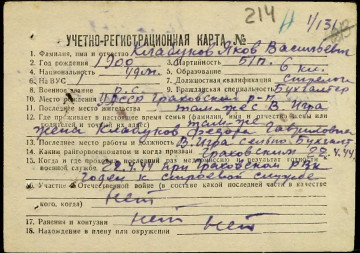 214
1/1318
УЧЕТНО-РЕГИСТРАЦИОННАЯ КАРТА №
1. Фамилия, имя и отчество Клабуков Яков Васильевич
2. Год рождения 1900 3. Партийность б/п.
4. Национальность удм. 5. Образование 6 кл.
6. На ВУС 1 7. Должностная квалификация стрелок
8. Воинское звание р-с. 9. Гражданская специальность Бухгалтер
10. Место рождения УАССР Граховский р-н
11. Последнее место жительства там-же с В. Игра
12. Где проживает в настоящее время семья (фамилия, имя и отчество жены или
родителей и точный их адрес) там-же
жена Клабукова Федора Гавриловна
13. Последнее место работы и должность В. Игра сельпо Бухгалт
14. Каким райвоенкоматом и когда призван Граховским 22.4.44
15. Когда и где проходил последний раз медкомиссию и результат годности к
военной службе 22.4.44 при Граховском РВК
годен к строевой службе
16. Участие в Отечественной войне (в составе какой последней части в качестве
кого, когда) нет
17. Ранения и контузии нет
18. Нахождение в плену или окружении нет